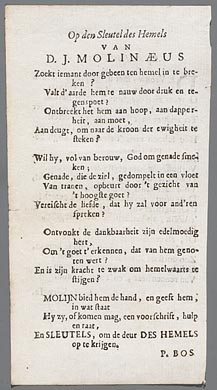 Op den Sleutel des Hemels
VAN
D. J. MOLINÆUS
Zoekt iemant door gebeen ten hemel in te bre-
ken?
Valt d'aarde hem te nauw door druk en te-
genspoet?
Ontbreekt het hem aan hoop, aan dapper-
heit, aan moet,
Aan deugt, om naar de kroon der ewigheit te
steken?
Wil hy, vol van berouw, God om genade smo-
ken;
Genade, die de ziel, gedompelt in een vloet
Van tranen, opbeurt door 't gezicht van
't hoogste goet?
Vereischt de liefde, dat hy zal voor and'ren
spreken?
Ontvonkt de dankbaarheit zijn edelmoedig
hert,
Om 't goet t'erkennen, dat van hem geno-
ten wert?
En is zijn kracht te zwak om hemelwaarts te
stijgen?
MOLIJN bied hem de hand, en geeft hem,
in wat staat
Hy zy, of komen mag, een voorschrift, hulp
en raat,
En SLEUTELS, om de deur DES HEMELS
op te krijgen.
P. BOS